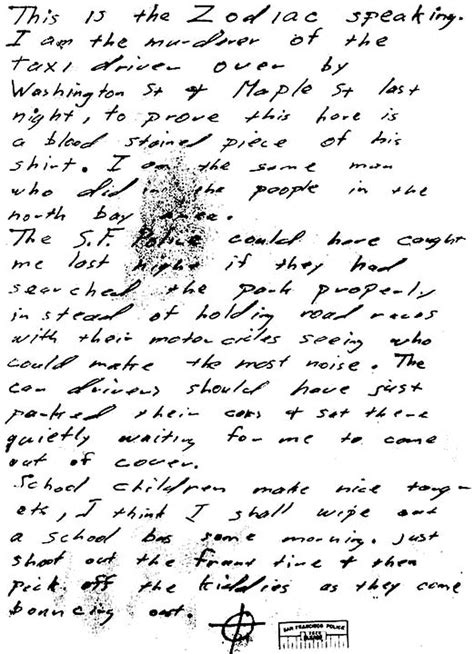 This is the Zodiac speaking.
I am the murderer of the
taxi driver over by
Washington St & Maple St last
night, to prove this here is
a blood stained piece of his
shirt. I am the same man
who did in the people in the
north bay area.
The S.F. Police could have caught
me last night if they had
searched the park properly
instead of holding road races
with their motorcicles seeing who
could make the most noise. The
car drivers should have just
parked their cars & sat there
quietly waiting for me to come
out of cover.
School children make nice targ-
ets, I think I shall wipe out
a school bus some morning. Just
shoot out the front tire & then
pick off the kiddies as they come
bouncing out.
SAN FRANCISCO POLICE